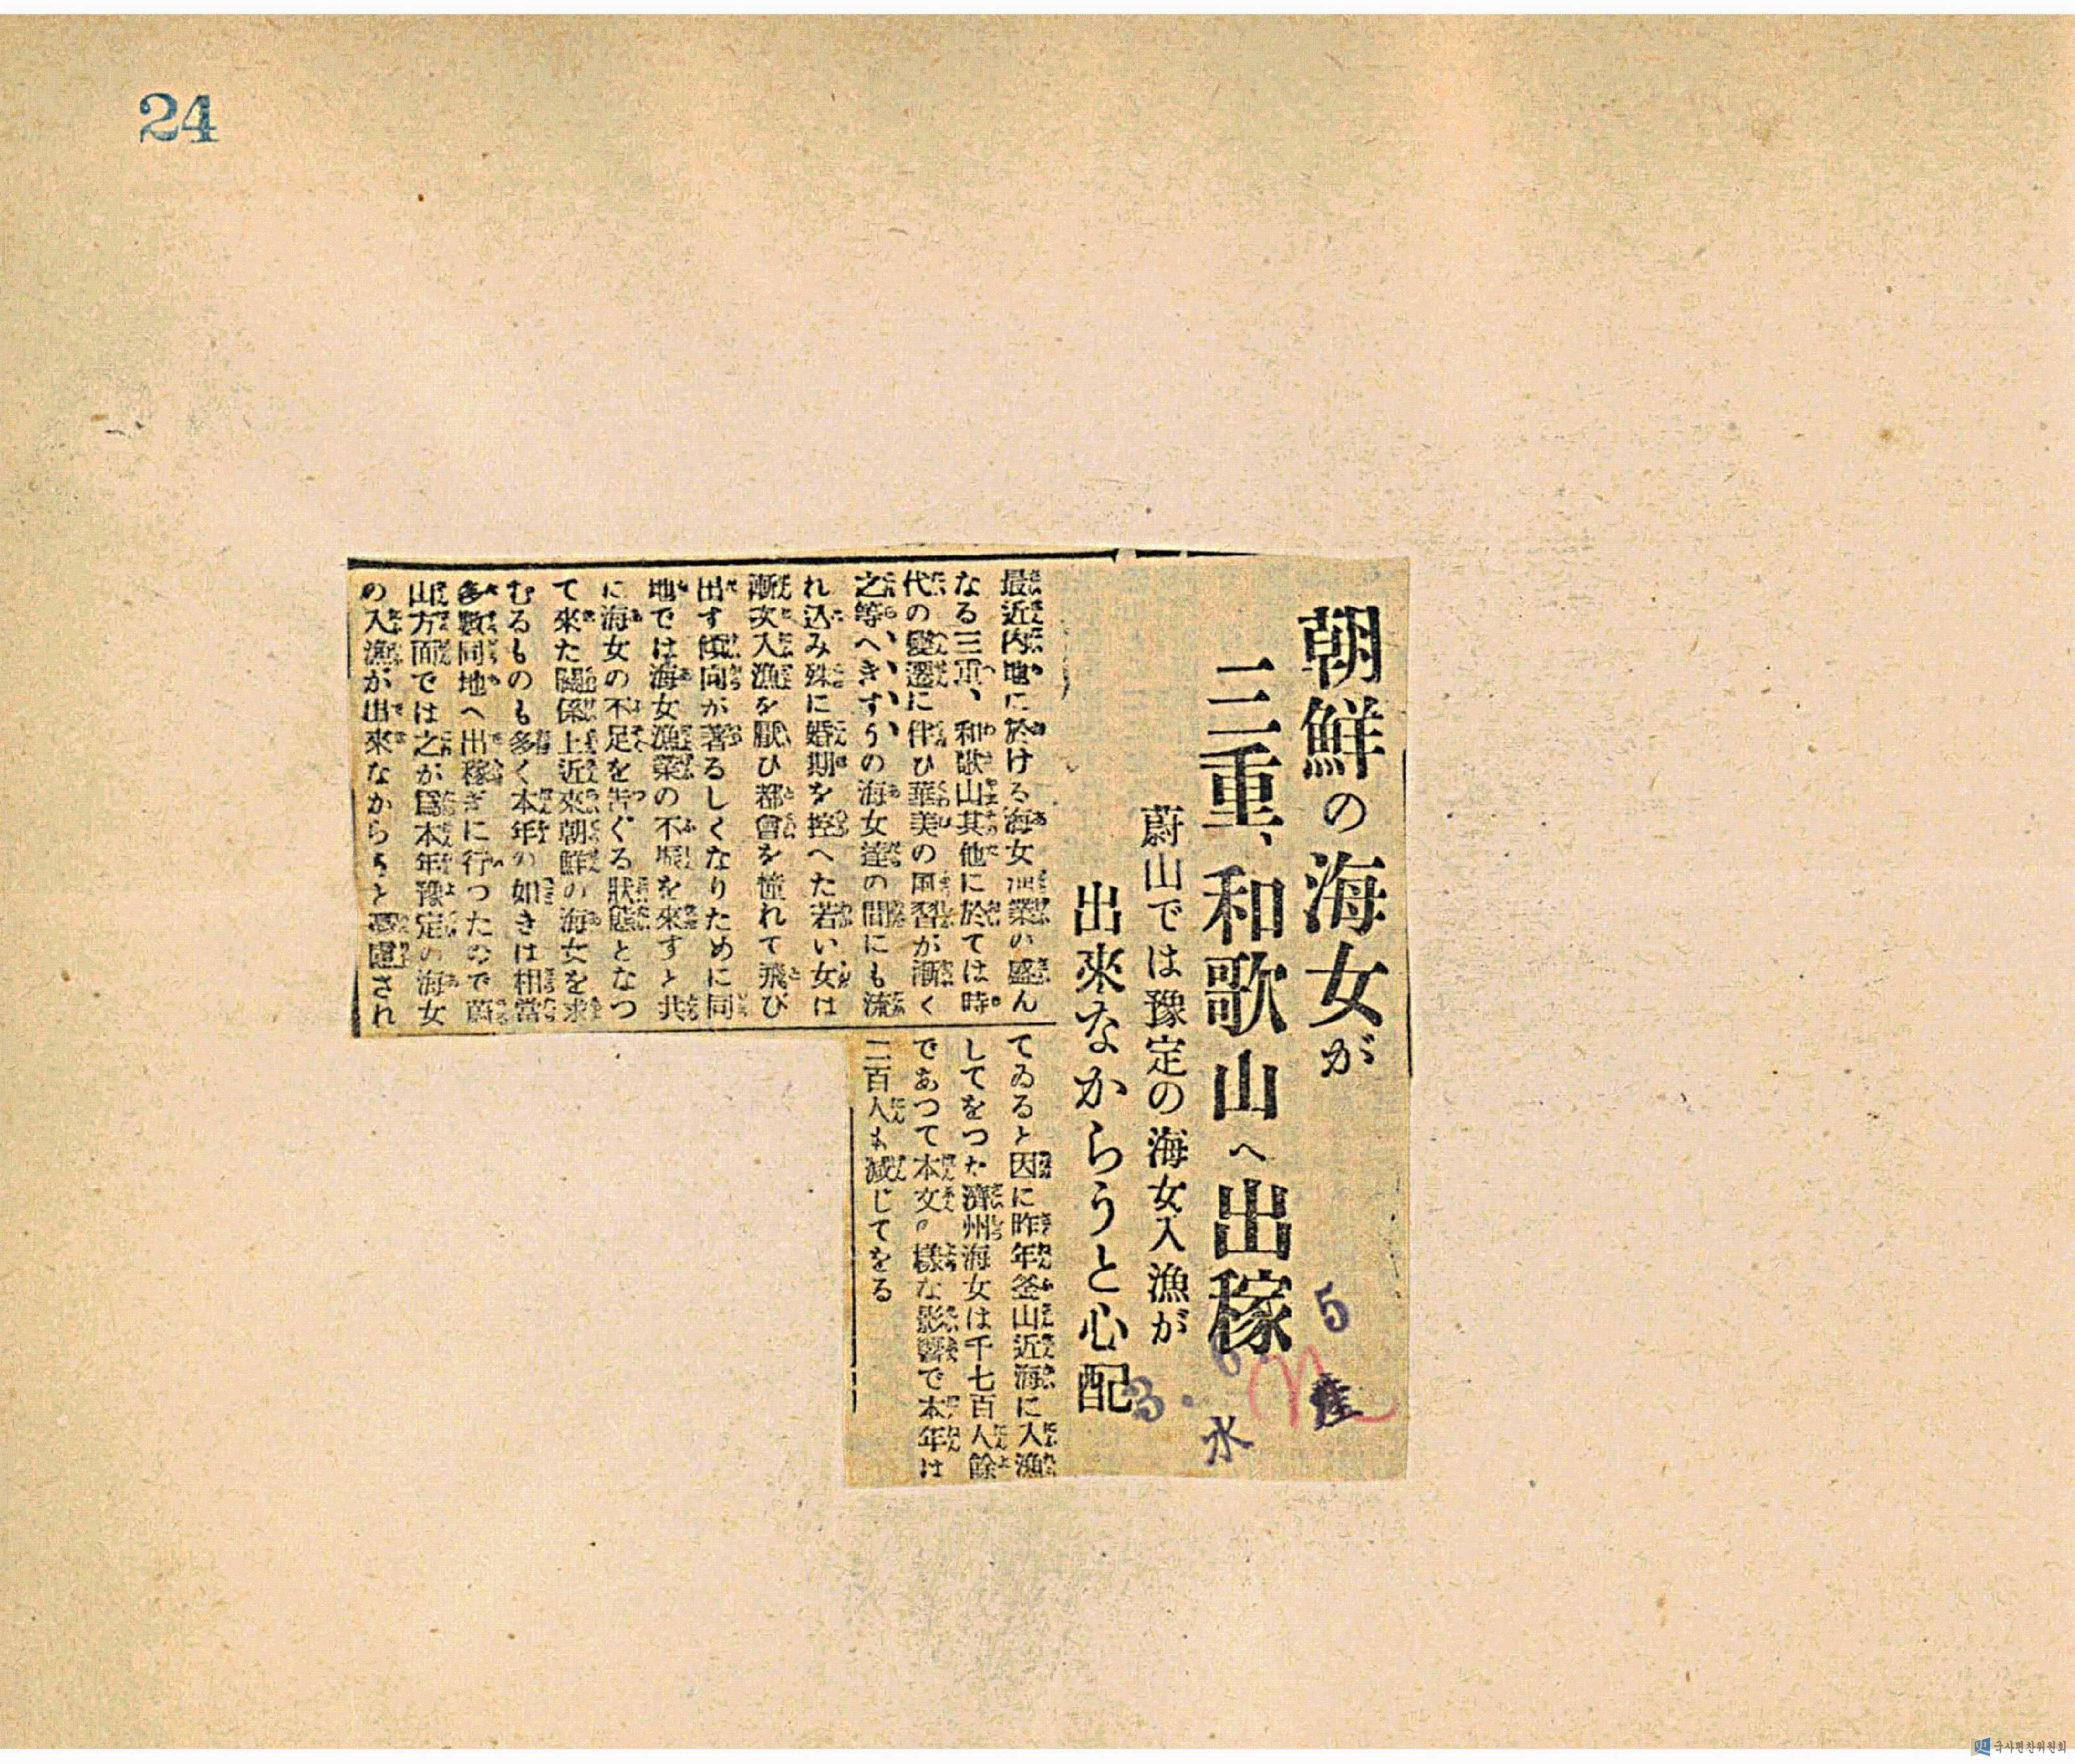 24
朝鮮の海女が
三重、和歌山へ出稼
蔚山では豫定の海女入漁が
出來なからうと心配
最近内地に於ける海女漁業の盛ん
なる三重、和歌山其他に於ては時
代の變遷に伴ひ華美の風習が漸く
之等へきすうの海女達の間にも流
れ込み殊に婚期を控へた若い女は
漸次入漁を厭ひ都會を憧れて飛び
出す傾向が著るしくなりために同
地では海女漁業の不振を來すと共
に海女の不足を告ぐる狀態となつ
て來た關係上近來朝鮮の海女を求
むるものも多く本年の如きは相當
多數同地へ出稼ぎに行つたので蔚
山方面では之が爲本年豫定の海女
の入漁が出來なからうと憂慮され
てゐると因に昨年釜山近海に入漁
してをつた濟州海女は千七百人餘
であつて本文の樣な影響で本年は
二百人も減じてをる
5
3.6.
水
産
국사편찬위원회